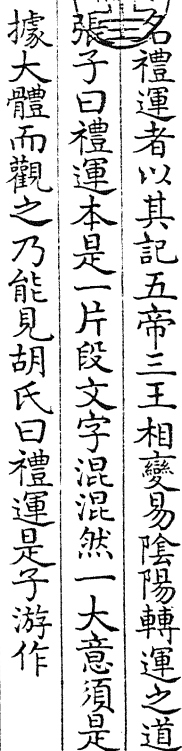 名禮運者以其記五帝三王相變易陰陽轉運之道
張子曰禮運本是一片段文字混混然一大意須是
據大體而觀之乃能見胡氏曰禮運是子游作